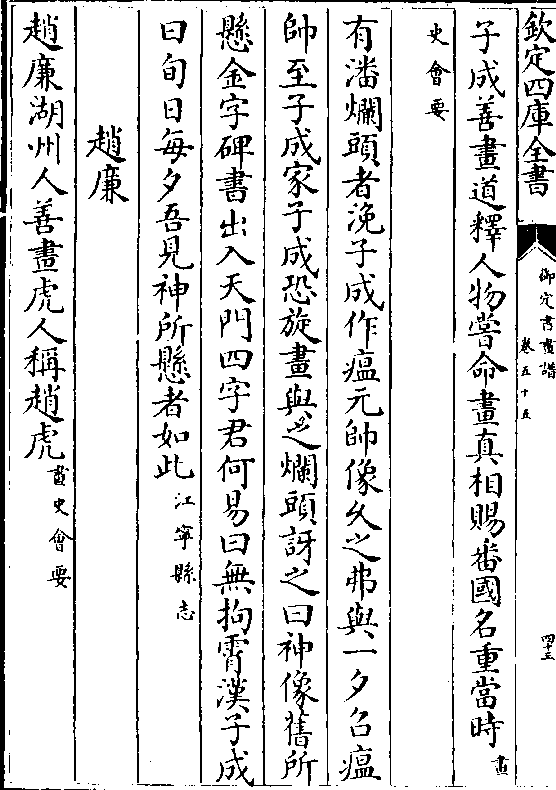 欽定四庫全書
御定書畫譜
卷五十五
四十三
子成善畫道釋人物嘗命畫真相賜番國名重當時畫
史會要
有潘爛頭者浼子成作瘟元帥像久之弗與一夕召瘟
帥至子成家子成恐旋畫與之爛頭訝之曰神像舊所
懸金字碑書出入天門四字君何易曰無拘霄漢子成
曰旬日每夕吾見神所懸者如此江寧縣志
趙廉
趙廉湖州人善畫虎人稱趙虎畫史會要